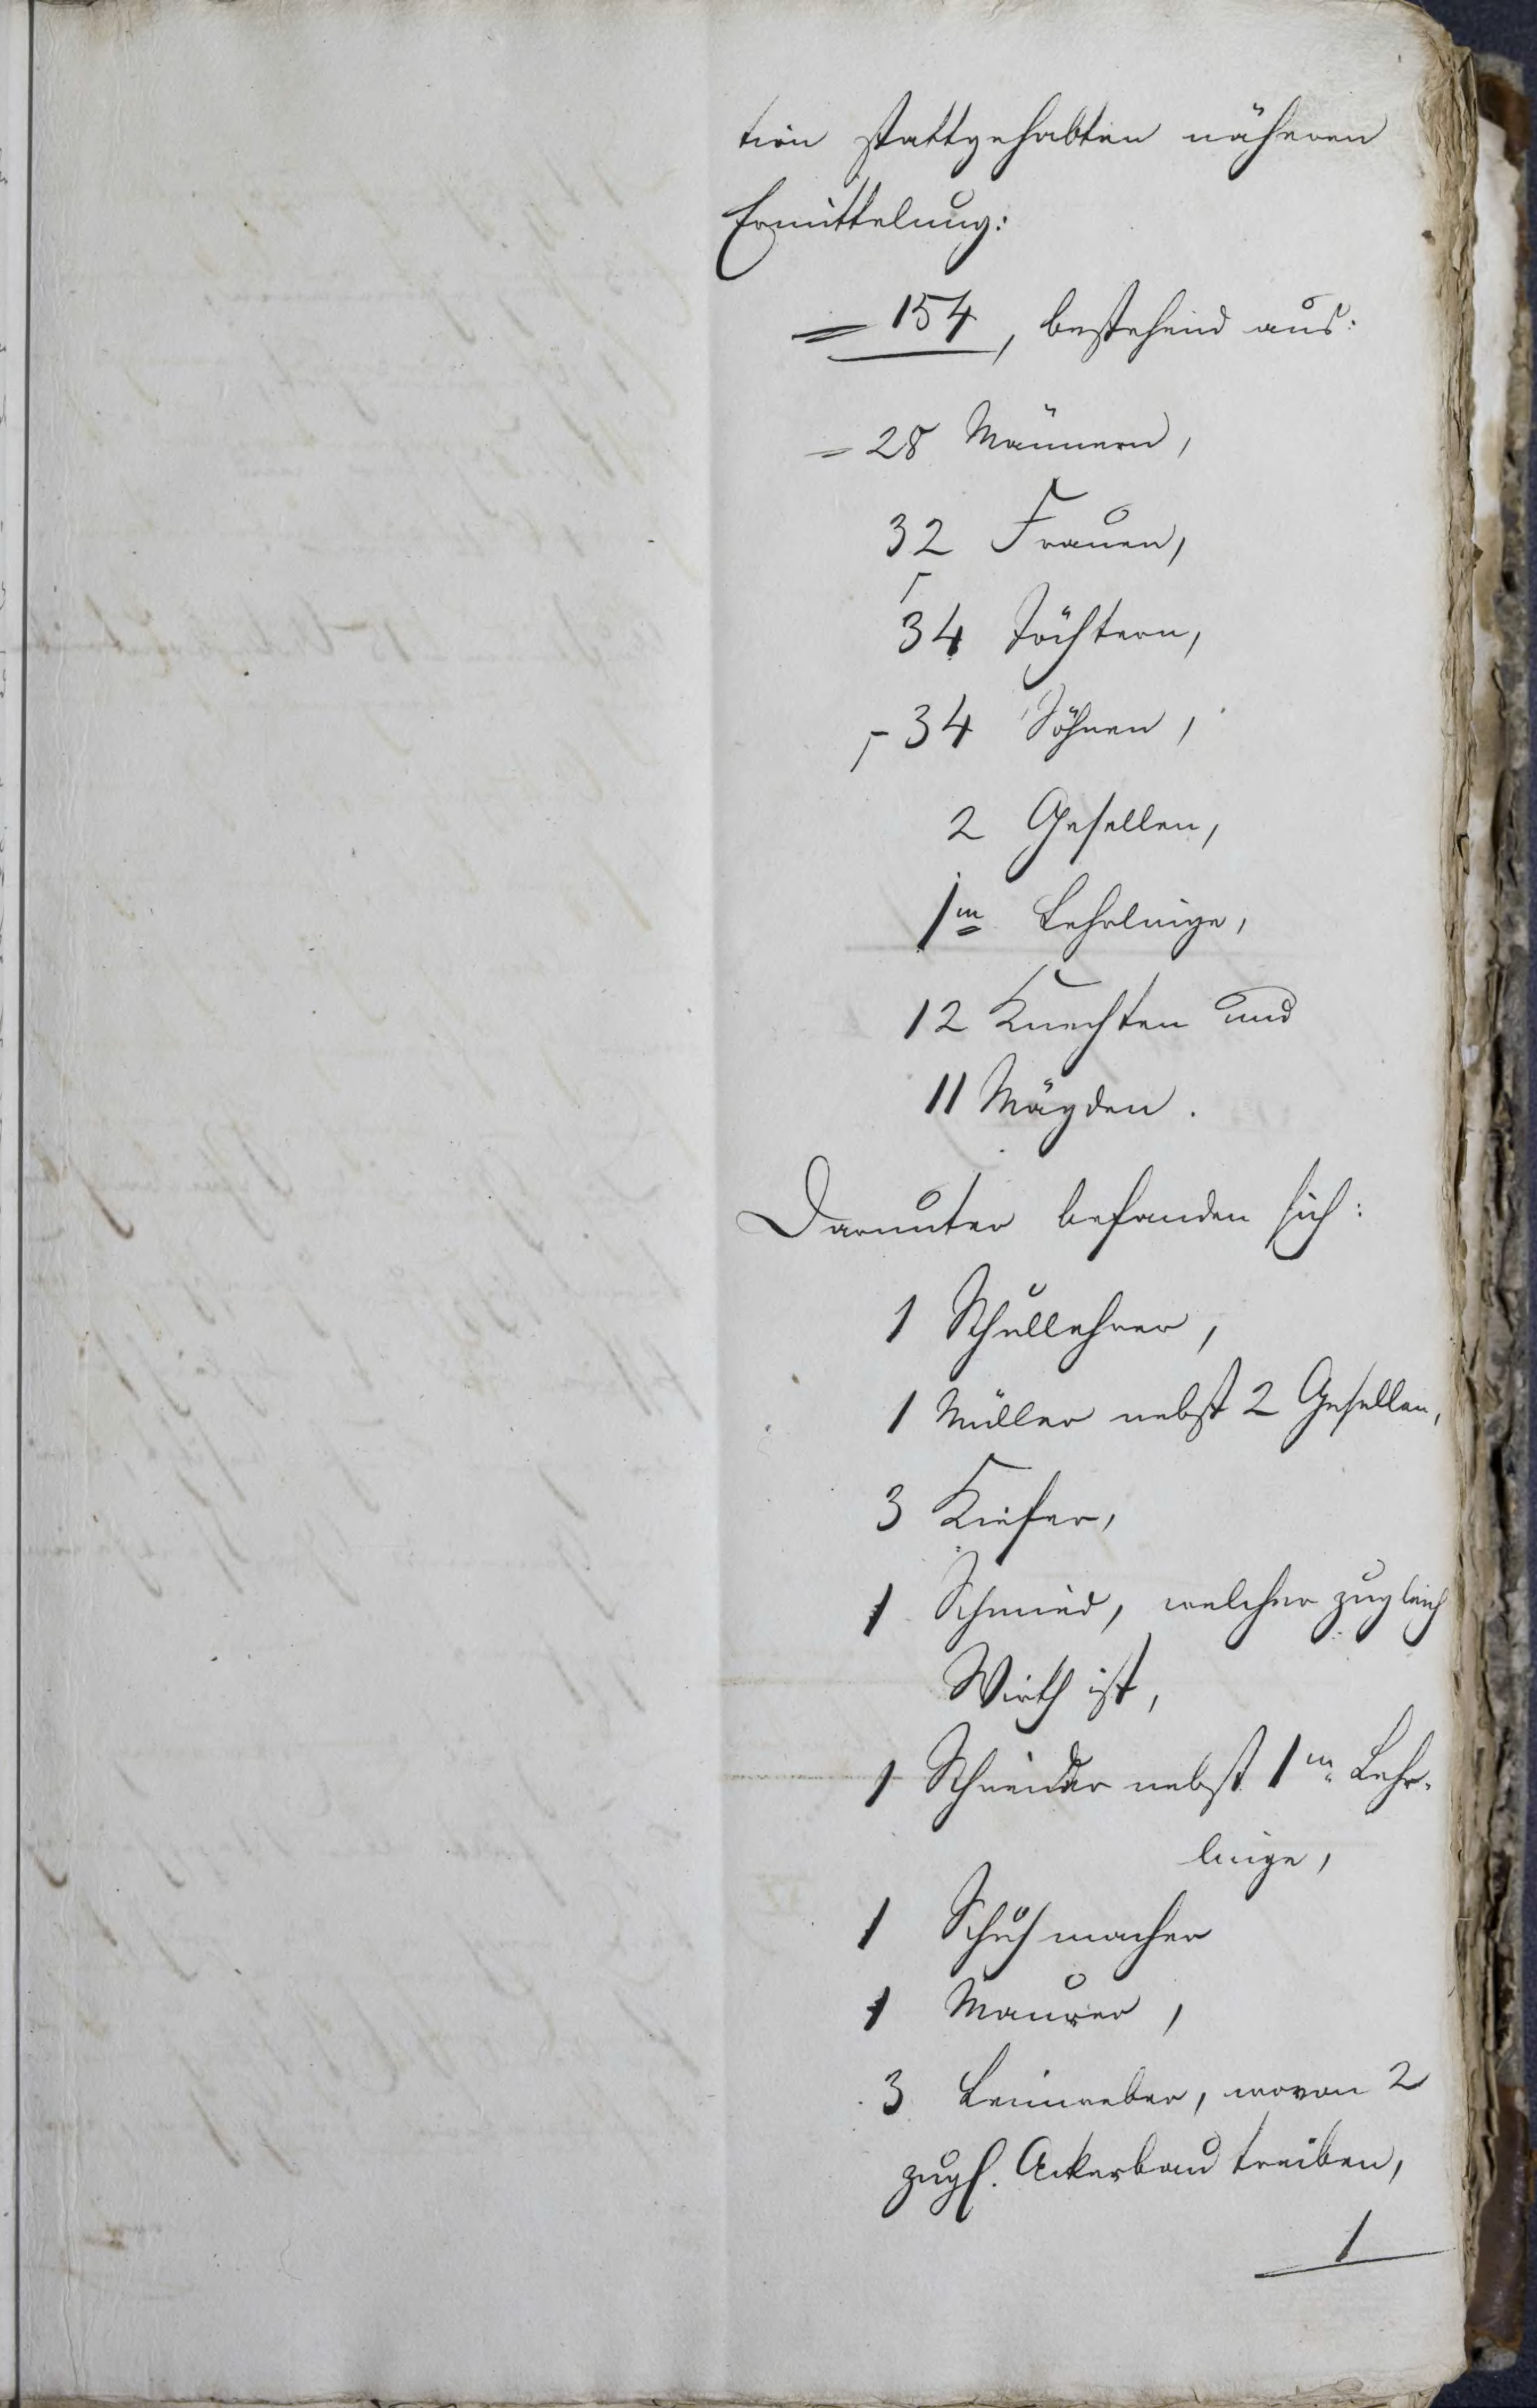 tion stattgehabten näheren
Ermittelung:
= 154, bestehend aus:
= 28 Männern,
32 Frauen,
34 Töchtern,
34 Söhnen,
2 Gesellen,
1m Lehrlinge,
12 Knechten und
11 Mägden.
Darunter befanden sich:
1 Schullehrer,
1 Müller nebst 2 Gesellen,
3 Kiefer,
1 Schmied, welcher zugleich
Wirth ist,
1 Schneider nebst 1m Lehr-
linge,
1 Schuhmacher
1 Maurer,
3 Leinweber, wovon 2
zugl. Ackerbau treiben,
1